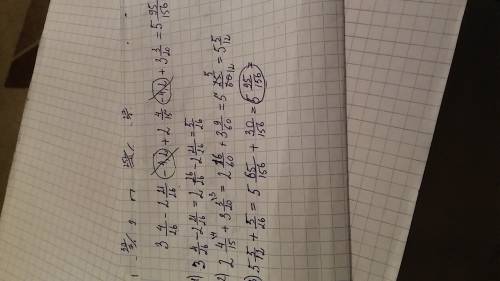 3 4/26 - 2 11/26 - 4,2 + 2 4/15 - 4,2 + 3 3/20 = 5 95/156
1) 3 4/26 - 2 11/26 = 2 - 2 11/26 = 5/26
2) 2 4/15 + 3 3/20 = 2 16/60 + 3 9/60 = 5 25/60 = 5 5/12
3) 5 5/12 + 5/26 = 5 65/156 + 30/156 = 5 95/156 =